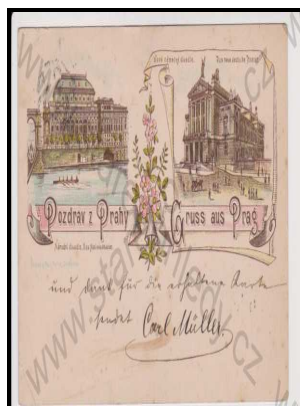 Nové německé divadlo. Das neue deutsche Theater.
Pozdrav z Prahy Gruss aus Prag
Národní divadlo. Das Nationaltheater.
und dankt für die erhaltene Karte
sendet Carl Müller.
www.stare-pohledy.cz